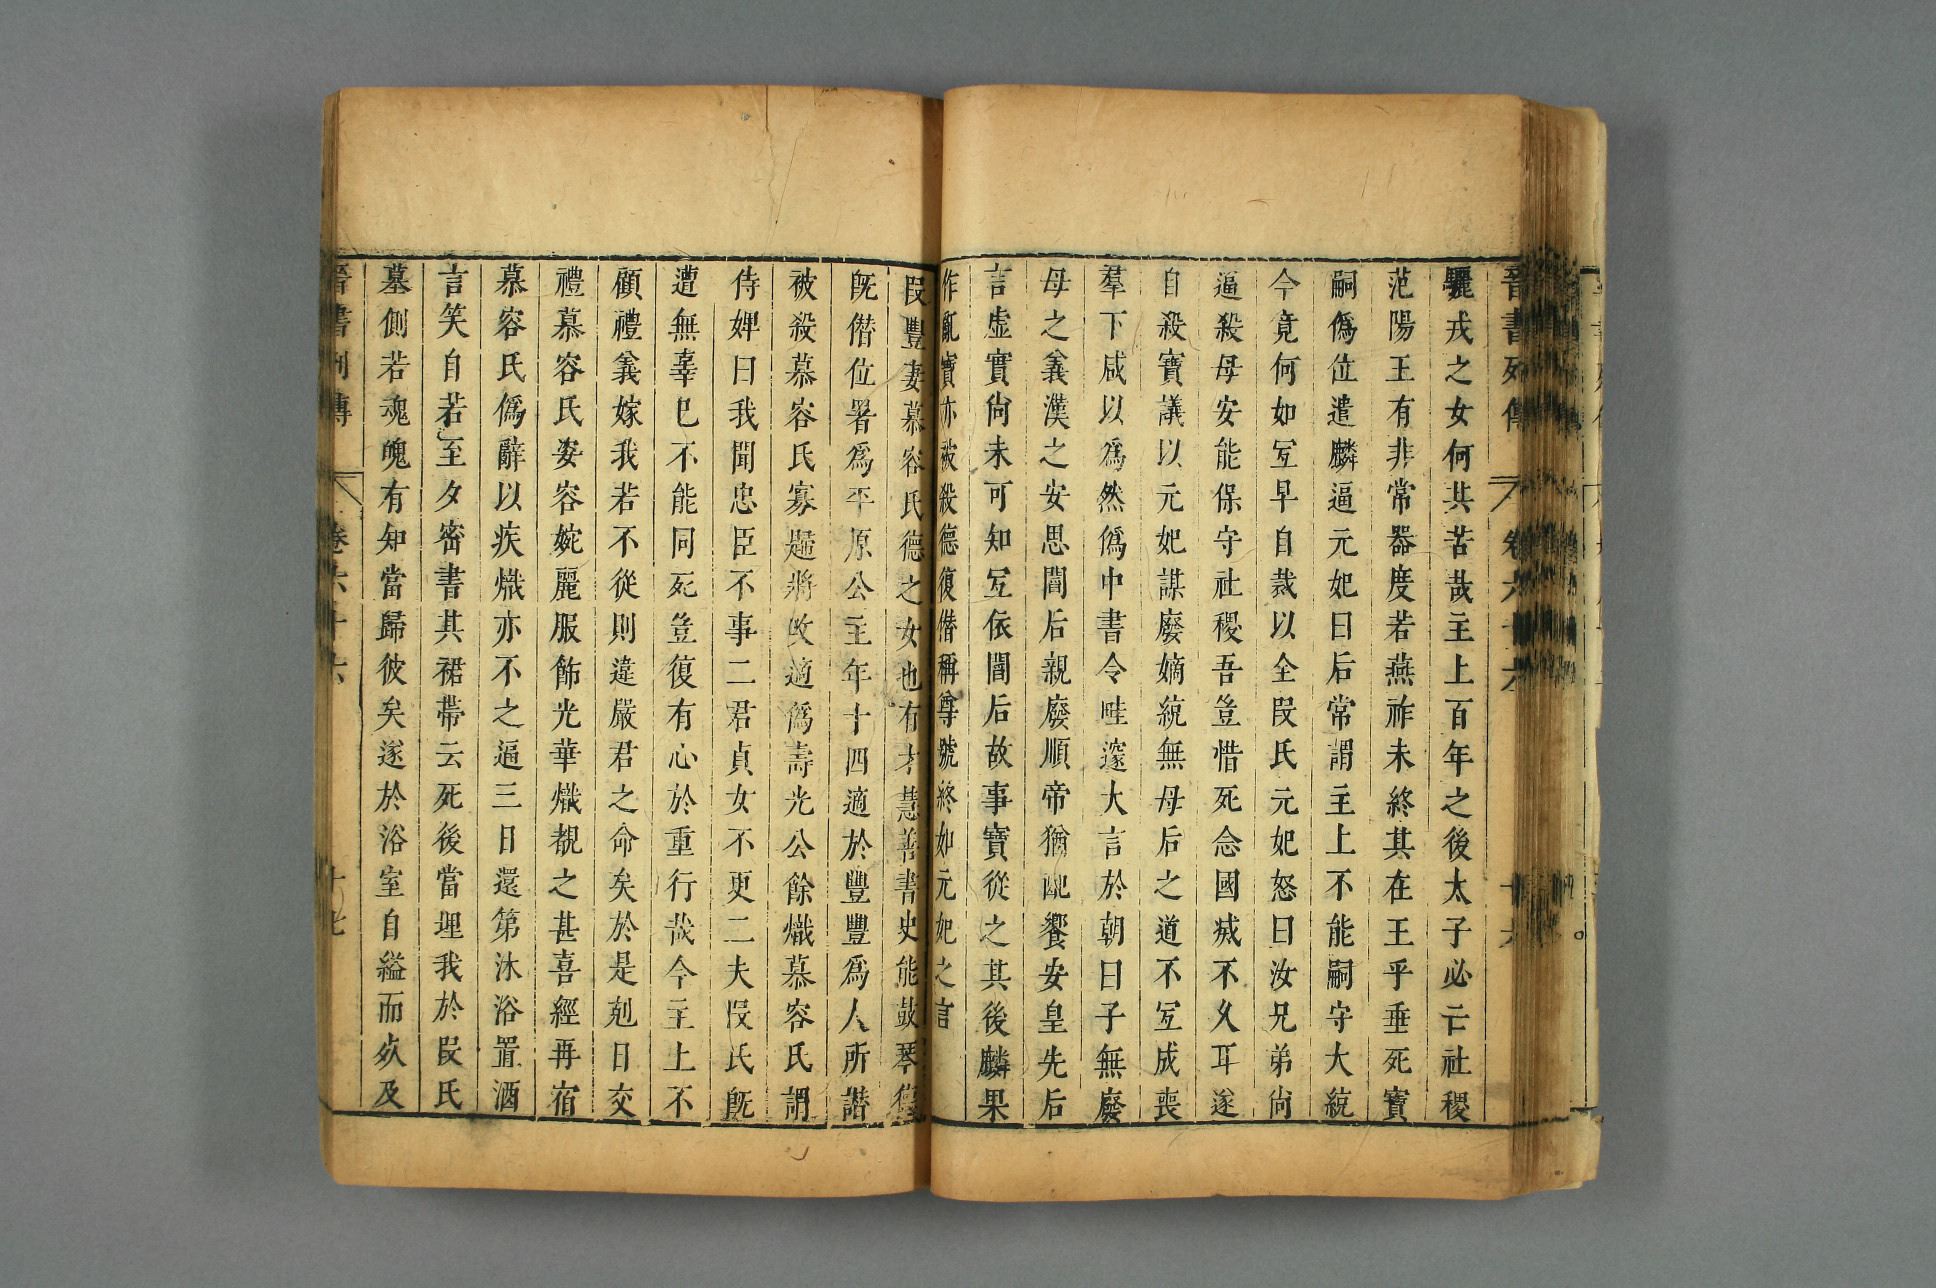 晉書列傳 卷六十六 十六
驪戎之女何其苦哉主上百年之後太子必亡社稷
范陽王有非常器度若燕祚未終其在王乎垂死寶
嗣僞位遣麟逼元妃曰后常謂主上不能嗣守大統
今竟何如宐早自裁以全叚氏元妃怒曰汝兄弟尙
逼殺母安能保守社稷吾豈惜死念國滅不久耳遂
自殺寶議以元妃謀廢嫡統無母后之道不宐成喪
羣下咸以爲然僞中書令眭邃大言於朝曰子無廢
母之義漢之安思閻后親廢順帝猶配饗安皇先后
言虛實尙未可知宐依閻后故事寶從之其後麟果
作亂寶亦被殺德復僭稱尊號終如元妃之言
叚豐妻慕容氏德之女也有才慧善書史能鼓琴德
旣僭位署爲平原公主年十四適於豐豐爲人所譖
被殺慕容氏寡歸將改適僞壽光公餘熾慕容氏謂
侍婢曰我聞忠臣不事二君貞女不更二夫叚氏旣
遭無辜已不能同死豈復有心於重行哉今主上不
顧禮義嫁我若不從則違嚴君之命矣於是剋日交
禮慕容氏姿容婉麗服飾光華熾覩之甚喜經再宿
慕容氏僞辭以疾熾亦不之逼三日還第沐浴置酒
言笑自若至夕密書其裙帶云死後當埋我於叚氏
墓側若魂魄有知當歸彼矣遂於浴室自縊而死及
晉書列傳 卷六十六 十七